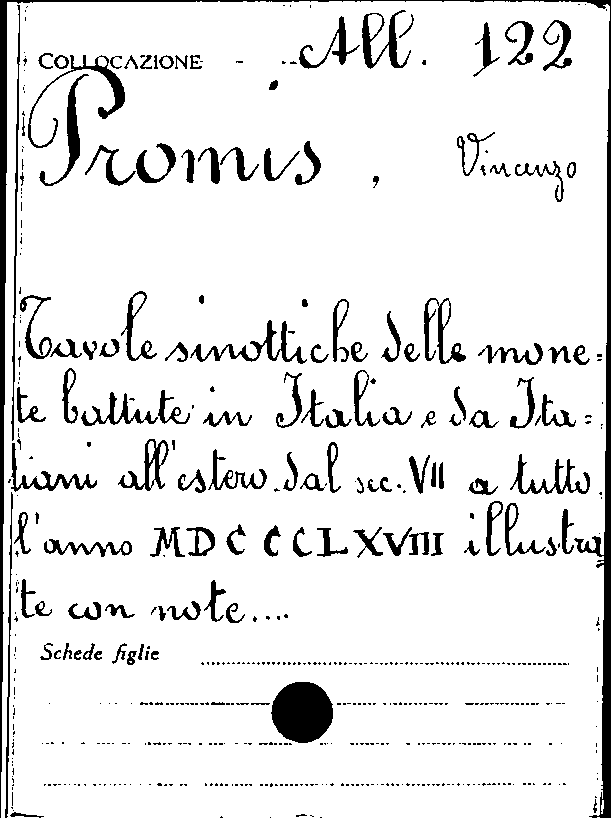 COLLOCAZIONE All. 122
Promis, Vincenzo
Tavole sinottiche delle mone=
te battute in Italia e da Ita=
liani all'estero dal sec. VII a tutto
l'anno MDCCCLXVIII illustra
te con note....
Schede figlie